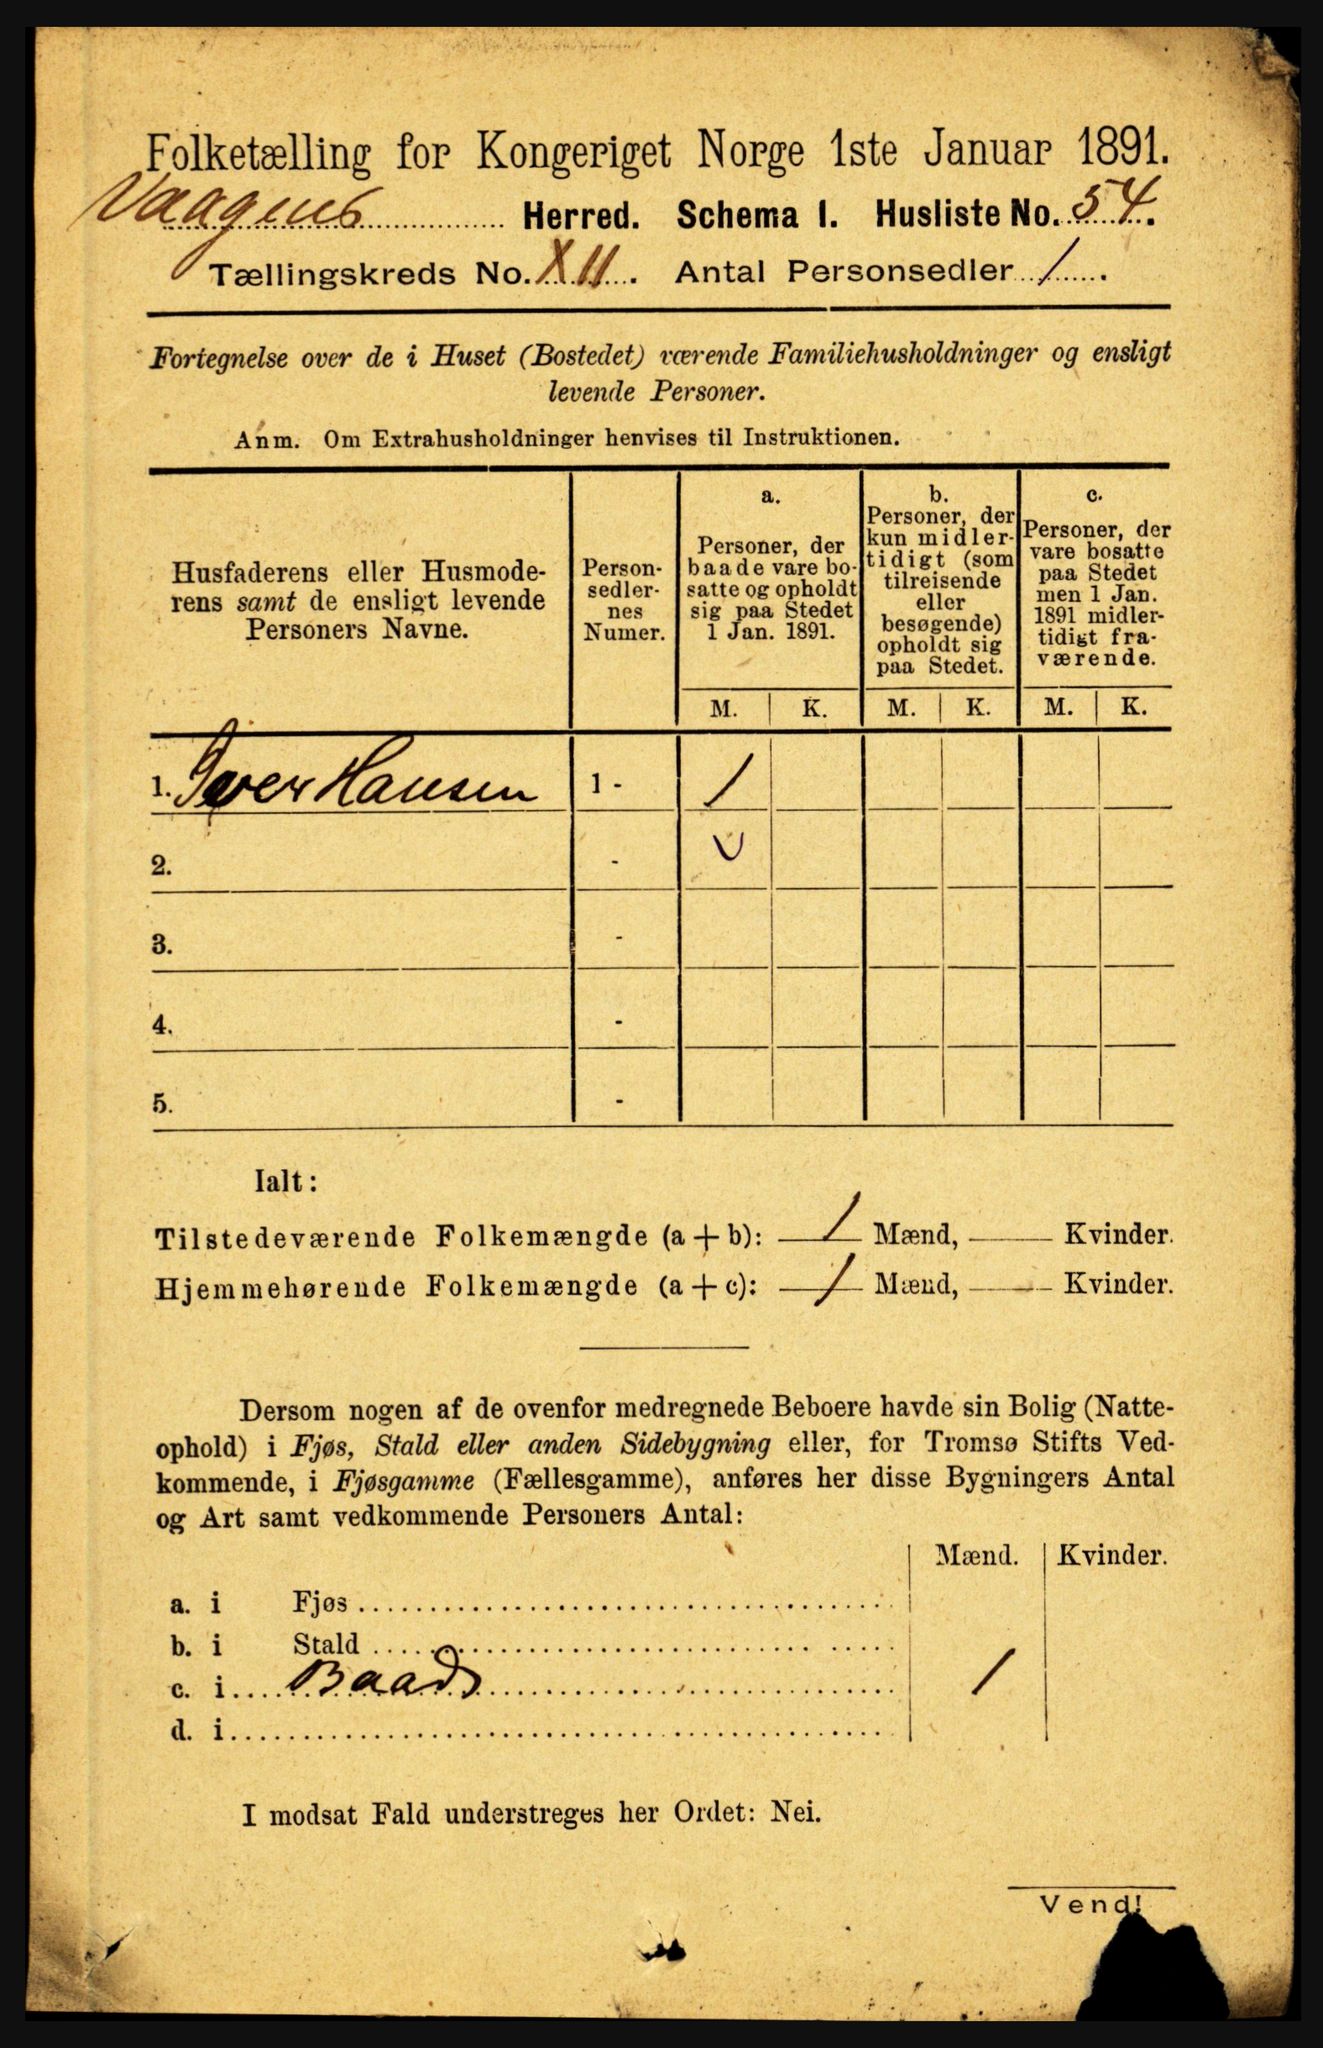 Folketælling for Kongeriget Norge 1ste Januar 1891.
Vaagens Herred. Schema I. Husliste No. 54.
Tællingskreds No. XII. Antal Personsedler 1.
Fortegnelse over de i Huset (Bostedet) værende Familiehusholdninger og ensligt
levende Personer.
Anm. Om Extrahusholdninger henvises til Instruktionen.
Husfaderens eller Husmode-
rens samt de ensligt levende
Personers Navne.
Person-
sedler-
nes
Numer.
a.
Personer, der
baade vare bo-
satte og opholdt
sig paa Stedet
1 Jan. 1891.
b.
Personer, der
kun midler-
tidigt (som
tilreisende
eller
besøgende)
opholdt sig
paa Stedet.
c.
Personer, der
vare bosatte
paa Stedet
men 1 Jan.
1891 midler-
tidigt fra-
værende.
M. K. M. K. M. K.
1. Iver Hansen 1 - 1
2. -
3. -
4. -
5. -
Ialt:
Tilstedeværende Folkemængde (a + b): 1 Mænd, — Kvinder.
Hjemmehørende Folkemængde (a + c): 1 Mænd, — Kvinder.
Dersom nogen af de ovenfor medregnede Beboere havde sin Bolig (Natte-
ophold) i Fjøs, Stald eller anden Sidebygning eller, for Tromsø Stifts Ved-
kommende, i Fjøsgamme (Fællesgamme), anføres her disse Bygningers Antal
og Art samt vedkommende Personers Antal:
Mænd. Kvinder.
a. i Fjøs
b. i Stald
c. i Baads 1
d. i
I modsat Fald understreges her Ordet: Nei.
Vend!